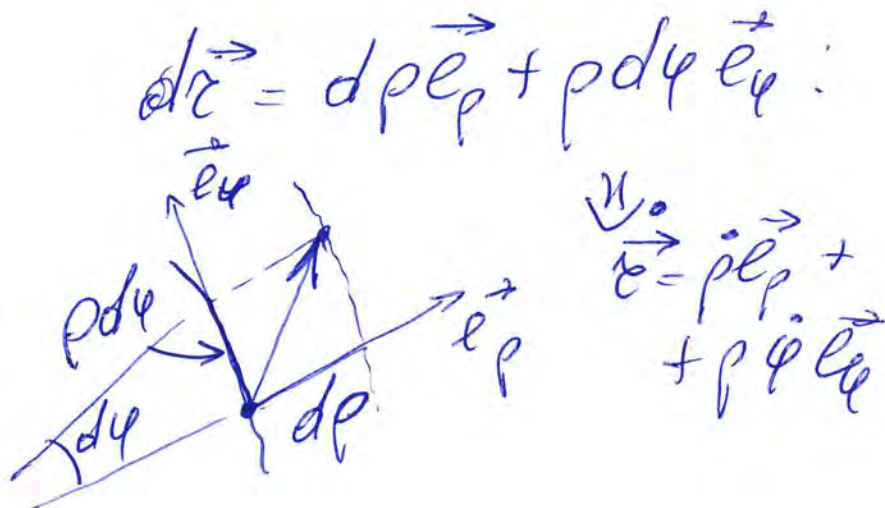 dr⃗ = dρe⃗ρ + ρdφ e⃗φ :
e⃗φ
ρdφ
dφ
dρ
e⃗ρ
и
ṙ⃗ = ρ̇e⃗ρ +
+ ρφ̇e⃗φ